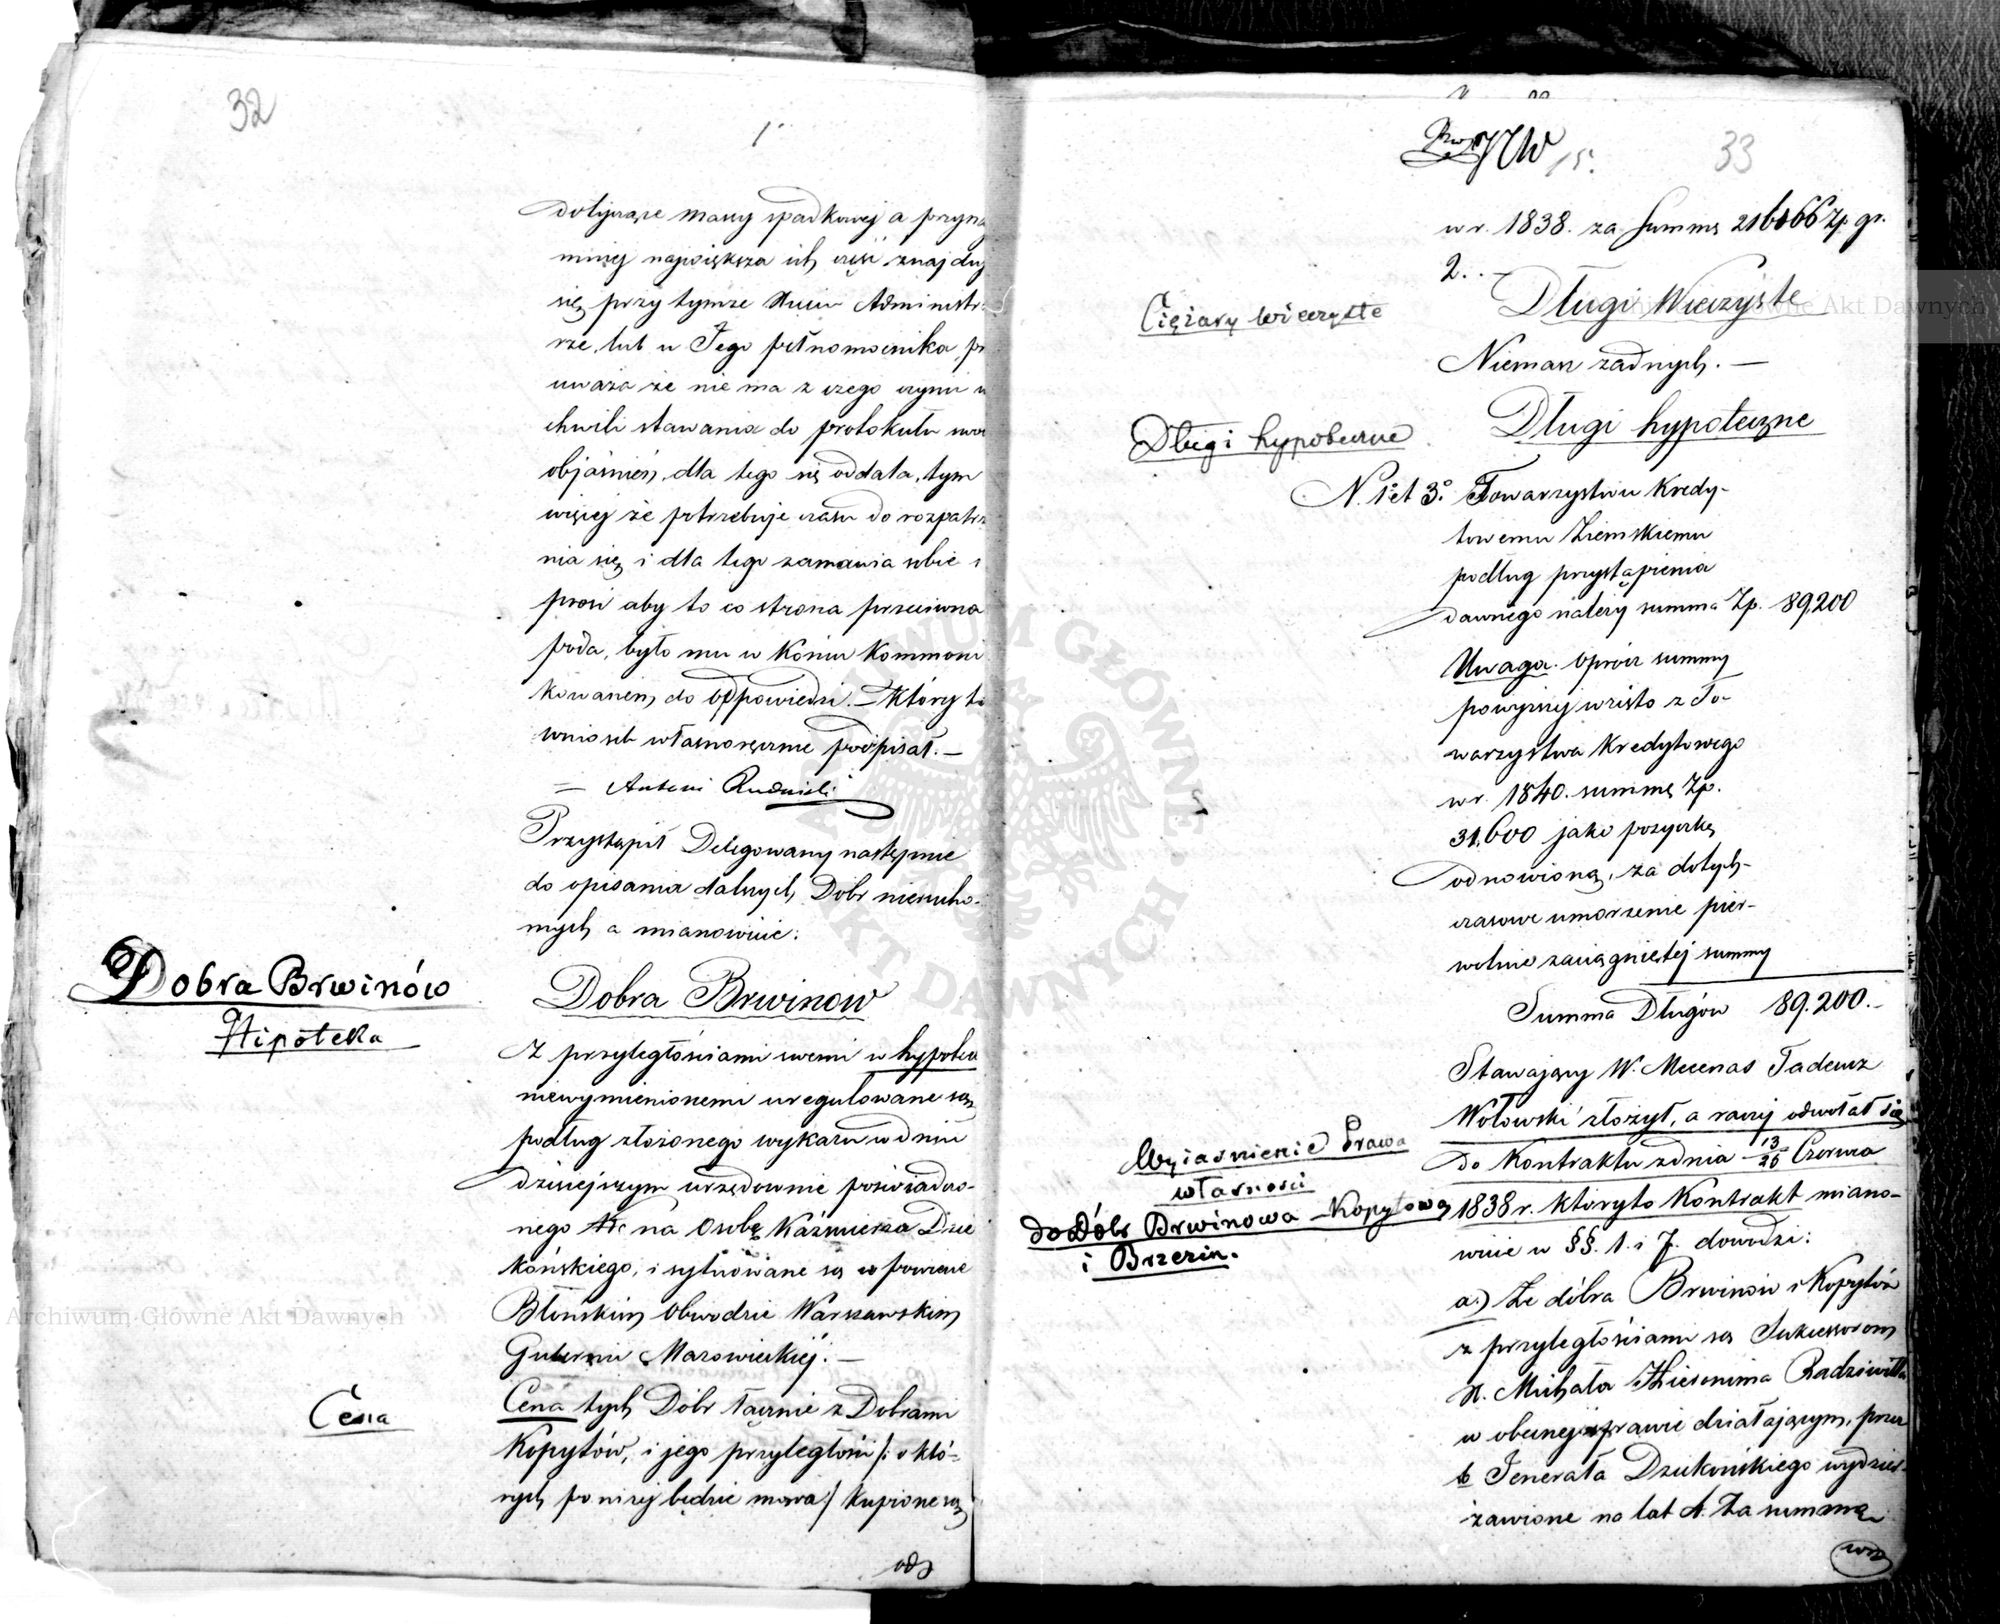 32
dotyczące massy spadkowej a przynaj
mniej największa ich część znajduj
się przy tymże Administr
rze, lub u Jego pełnomocnika, pr
uważa że nie ma z czego czynić w
chwili stawania do protokułu swo
objaśnień, dla tego się oddala, tym
więcej że potrzebuje czasu do rozpatrz
nia się, i dla tego zamawia sobie i
prosi aby to co strona przeciwna
poda, było mu w końcu kommoni
kowanem do odpowiedzi. — Który to
wniosek własnoręcznie podpisał. —
= Antoni Rudnicki
Przystąpił Delegowany następnie
do opisania dalszych Dóbr nierucho-
mych a mianowicie:
Dobra Brwinów
Hipoteka
Dobra Brwinow
Z przyległościami swemi w hypotece
niewymienionemi uregulowane są
podług złożonego wykazu w dniu
dzisiejszym urzędownie poświadczo-
nego na Osobę Kaźmierza Dzie
końskiego, i sytuowane są w powiecie
Błońskim Obwodzie Warszawskim
Gubernii Mazowieckiej. —
Cena
Cena tych Dóbr łącznie z Dobrami
Kopytów, i jego przyległości /: o któ-
rych poniżej będzie mowa :/ kupione są
33
15.
w r. 1838. za Summę Zp. gr.
2. . -
Ciężary wieczyste
Długi Wieczyste
Niemasz żadnych. —
Długi hypoteczne
Długi hypoteczne
N. 1 et 3. Towarzystwu Kredy-
towemu Ziemskiemu
podług przystąpienia
dawnego należy summa Zp. 89,200
Uwaga. Oprócz summy
powyższej wzięto z To-
warzystwa Kredytowego
w r. 1840. summę Zp.
31,600 jako pożyczkę
odnowioną, za dotych-
czasowe umorzenie pier-
wotnie zaciągniętej summy
Summa Długów 89.200.-
Stawający W. Mecenas Tadeusz
Wołowski złożył, a raczej odwołał się
Wyjaśnienie Prawa
własności
do Dóbr Brwinowa Kopytowa
i Brzezin.
do Kontraktu z dnia 13/25 Czerwca
1838 r. któryto Kontrakt miano-
wicie w §§. 1. i 7. dowodzi:
a.) Że dobra Brwinów i Kopytów
z przyległościami są Sukcessorom
X. Michała Hieronima Radziwiłła
w obecnej sprawie działającym, przez
Jenerała Dziekońskiego wydzier-
żawione na lat Za summę